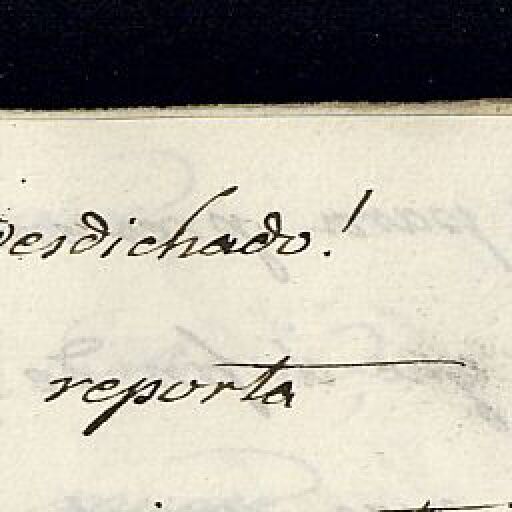 Desdichado!
reporta